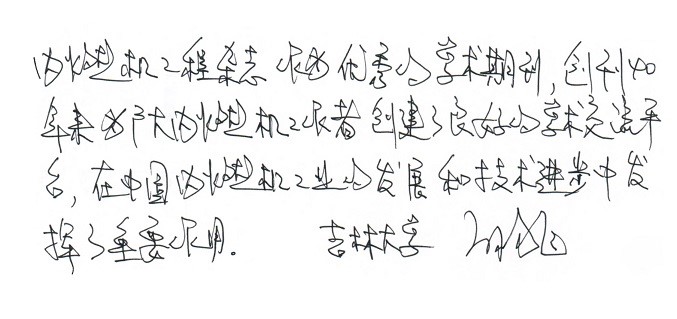 内燃机工程杂志作为优秀的学术期刊,创刊40
年来为广大内燃机工作者创建了良好的学术交流平
台,在中国内燃机工业的发展和技术进步中发
挥了重要作用.  吉林大学